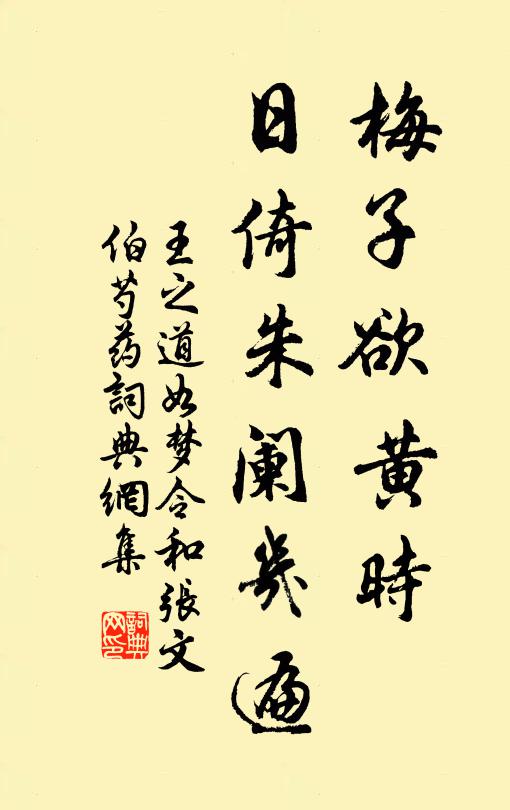 梅子欲黄時
日倚朱阑幾遍
王之道如梦令和張文
伯芍药詞典網集
詞典网印